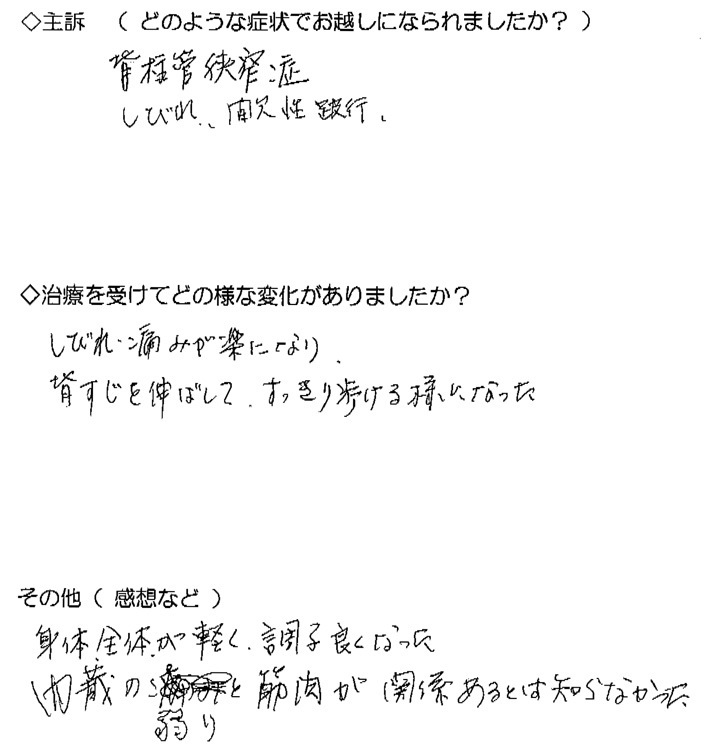 ◇主訴 （ どのような症状でお越しになられましたか？ ）
脊柱管狭窄症
しびれ、間欠性跛行、
◇治療を受けてどの様な変化がありましたか？
しびれ・痛みが楽になり、
背すじを伸ばして、すっきり歩ける様になった
その他（ 感想など ）
身体全体が軽く、調子良くなった
内蔵の弱りと筋肉が関係あるとは知らなかった